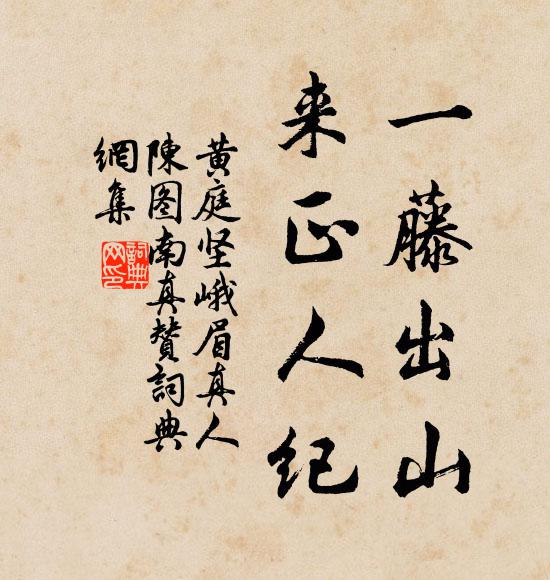 一藤出山
来正人纪
黄庭坚峨眉真人
陳图南真赞詞典
網集
詞典
网印